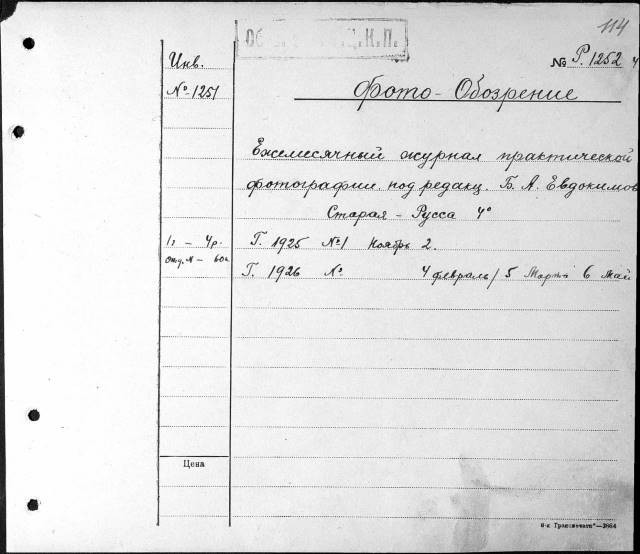 114
Ц.К.П.
№ Р. 1252 4
Инв.
№ 1251
Фото-Обозрение
Ежемесячный журнал практической
фотографии под редакц. Б. А. Евдокимов
Старая-Русса 4°
1г – 4р. Г. 1925 №1 Ноябрь 2.
отд. № – 60к Г. 1926 № 4 февраль/ 5 Март 6 Май
Цена
"—3864